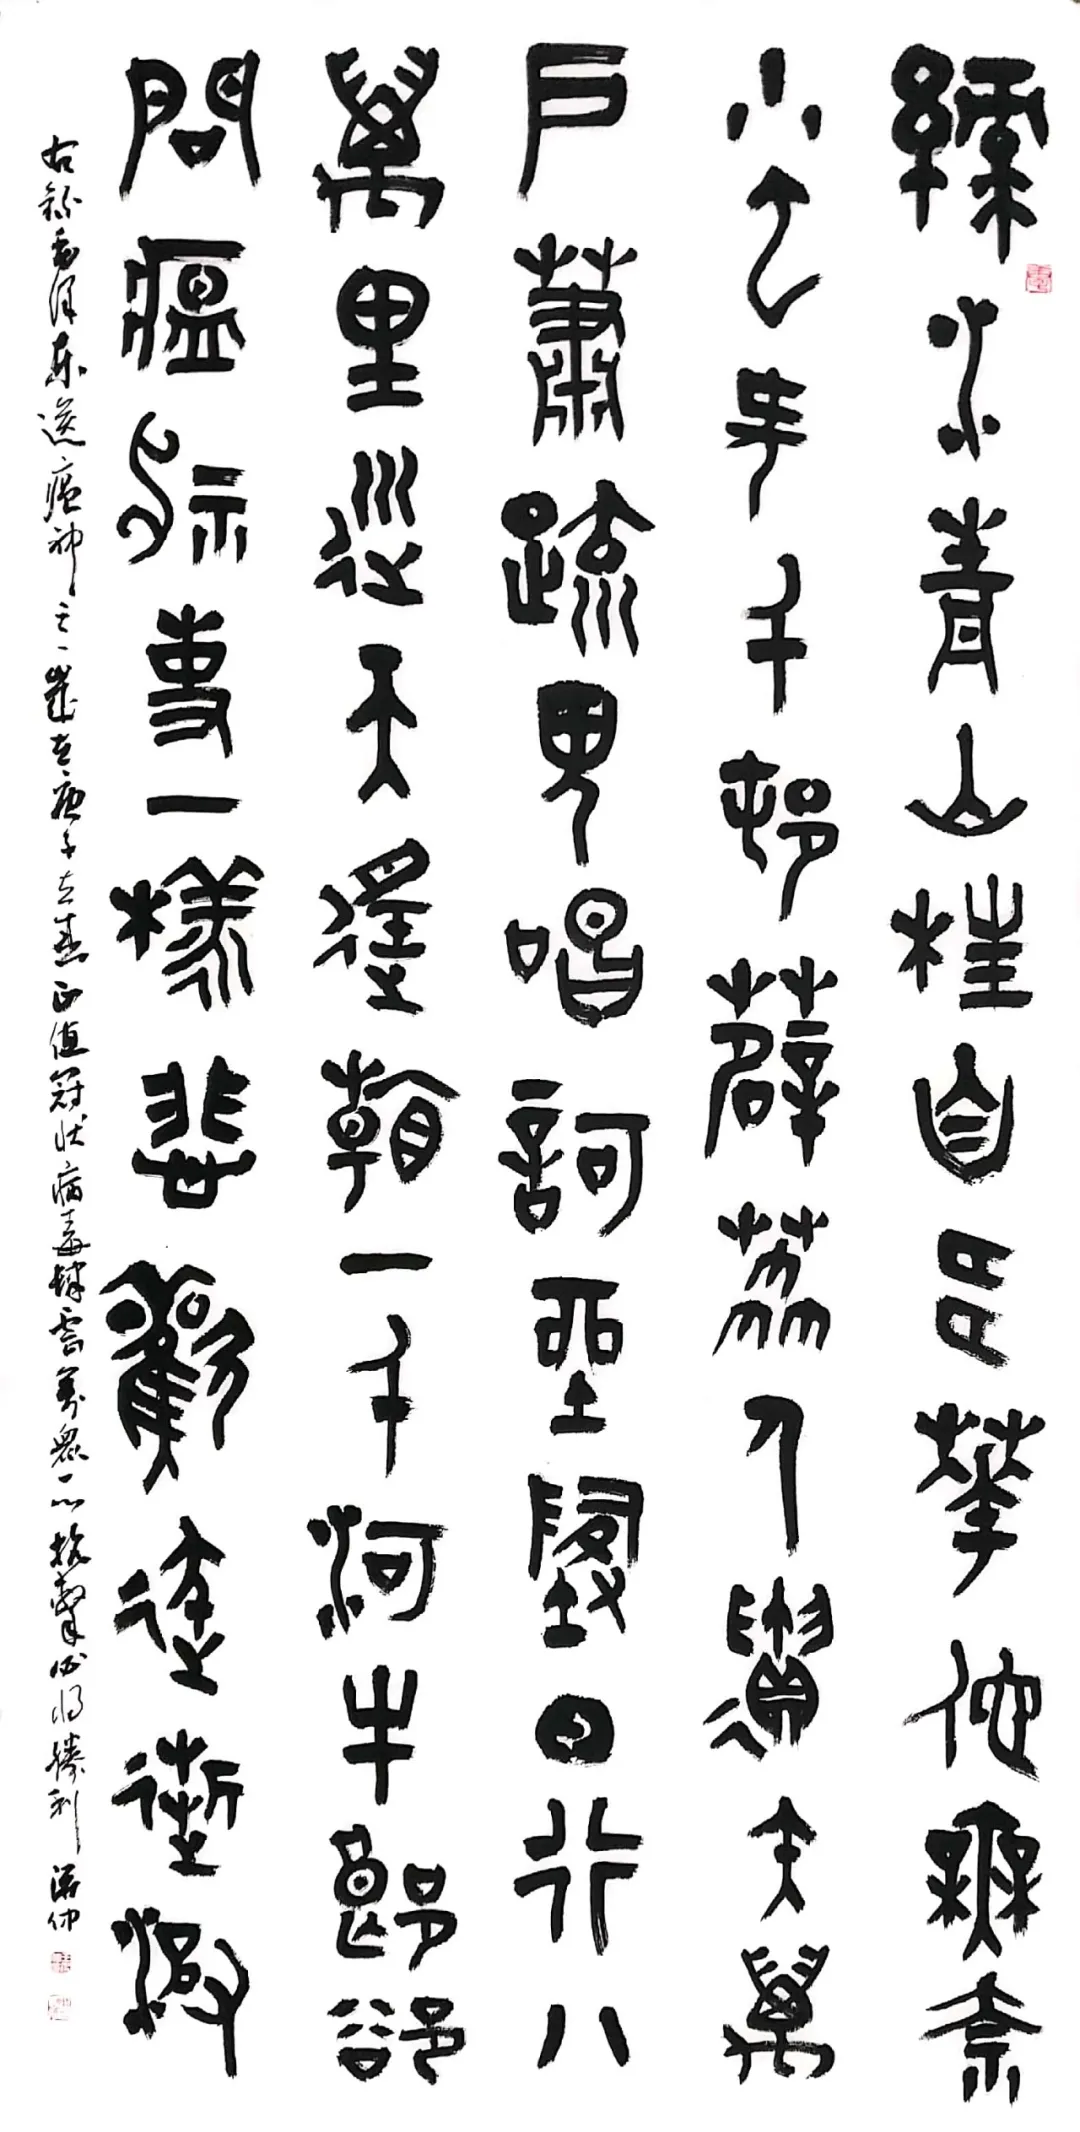 綠水青山枉自多華佗無奈
小虫何千邨薜荔人遺矢萬
戶蕭疏鬼唱歌坐地日行八
萬里巡天遙看一千河牛郎欲
問瘟神事一樣悲歡逐逝波
右錄毛澤東送瘟神之一歲在庚子立春正值冠狀病毒肆虐萬眾一心抗擊必將勝利